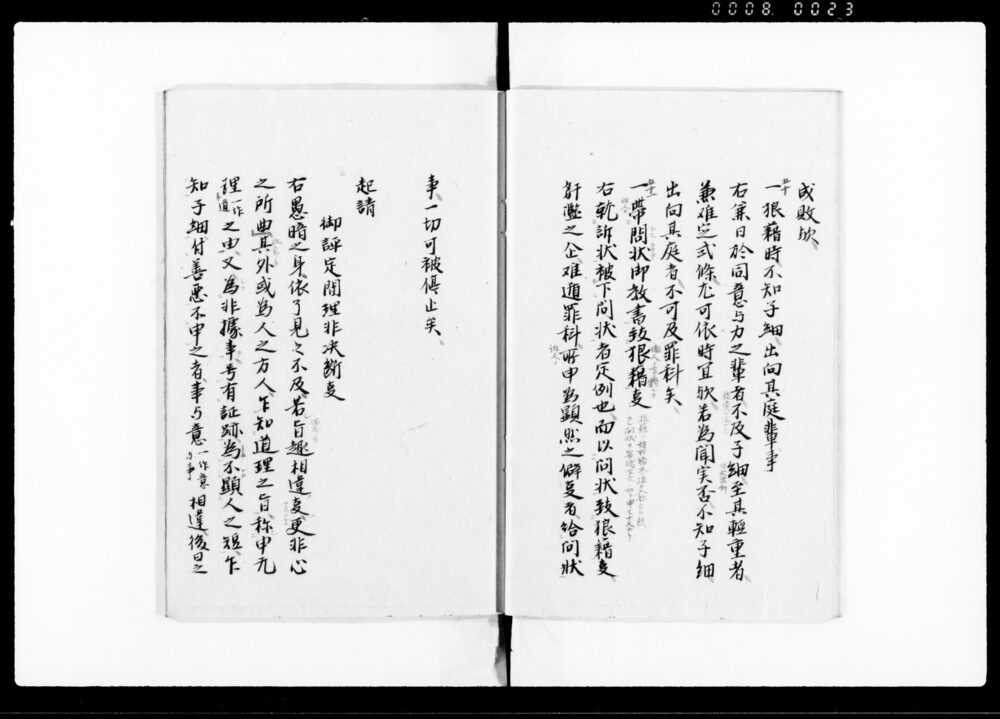 0008 0023
成敗欤
五十
一狼藉時不知子細出向其庭輩事
右於同意与力之輩者不及子細至其軽重者
兼難定式條尤可依時宜欤若為聞実否不知子細
出向其庭者不可及罪科矣
五十一
一帶問状御教書致狼藉事
右就訴状被下問状者定例也而以問状致狼藉事
姧濫之企難遁罪科所申為顕然之僻事者給問状
事一切可被停止矣
起請
御評定間理非决断事
右愚暗之身依了見之不及若旨趣相違事更非心
之所曲其外或為人之方人乍知道理之旨称申无
理一作道之由又為非據事号有証跡為不顕人之短乍
知子細付善悪不申之者事与意一作意与事相違後日之